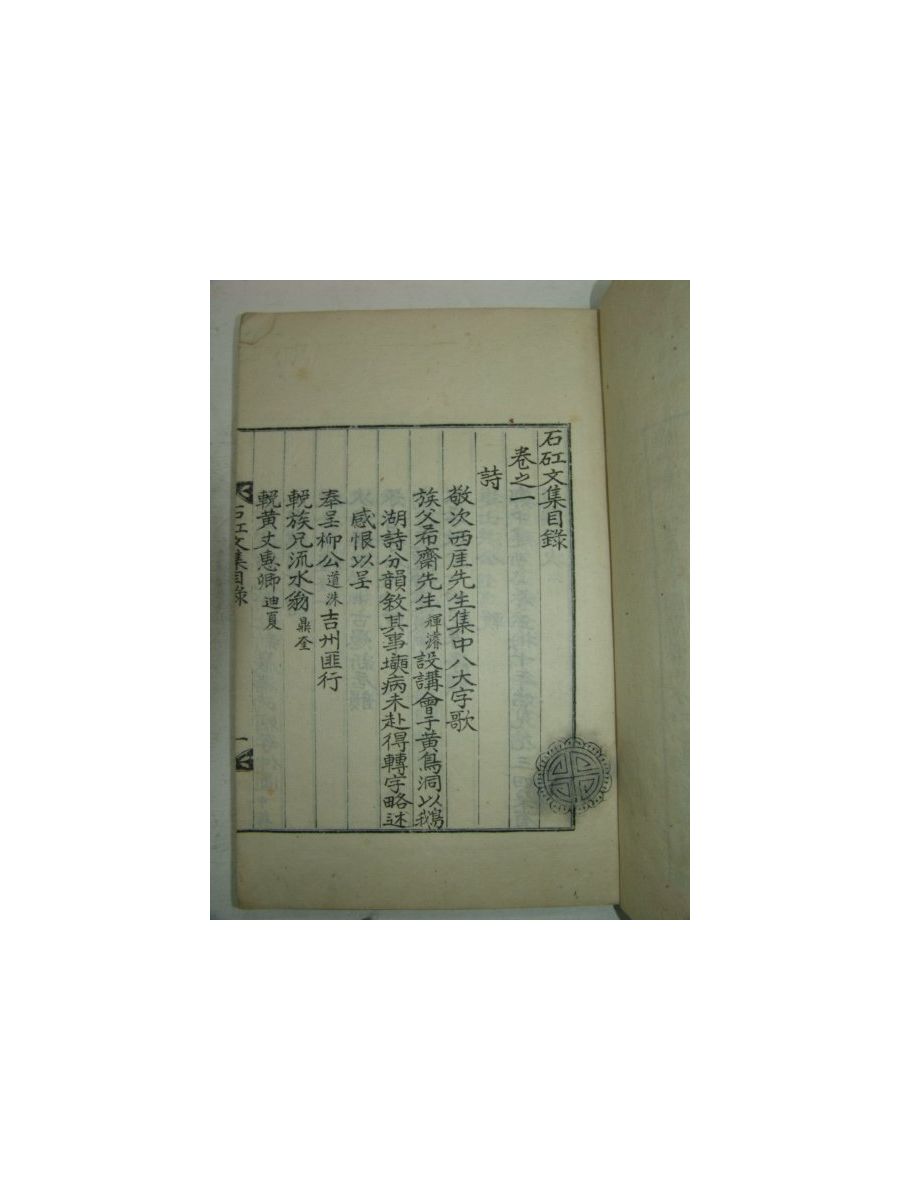 石矼文集目錄
卷之一
詩
敬次西厓先生集中八大字歌
族父希齋先生輝濬設講會于黃鳥洞以鵝
湖詩分韻敘其事顯病未赴得轉字略述
感恨以呈
奉呈柳公道洙吉州匪行
輓族兄流水翁鼎奎
輓黃丈惠卿迪夏
石矼文集目錄
一